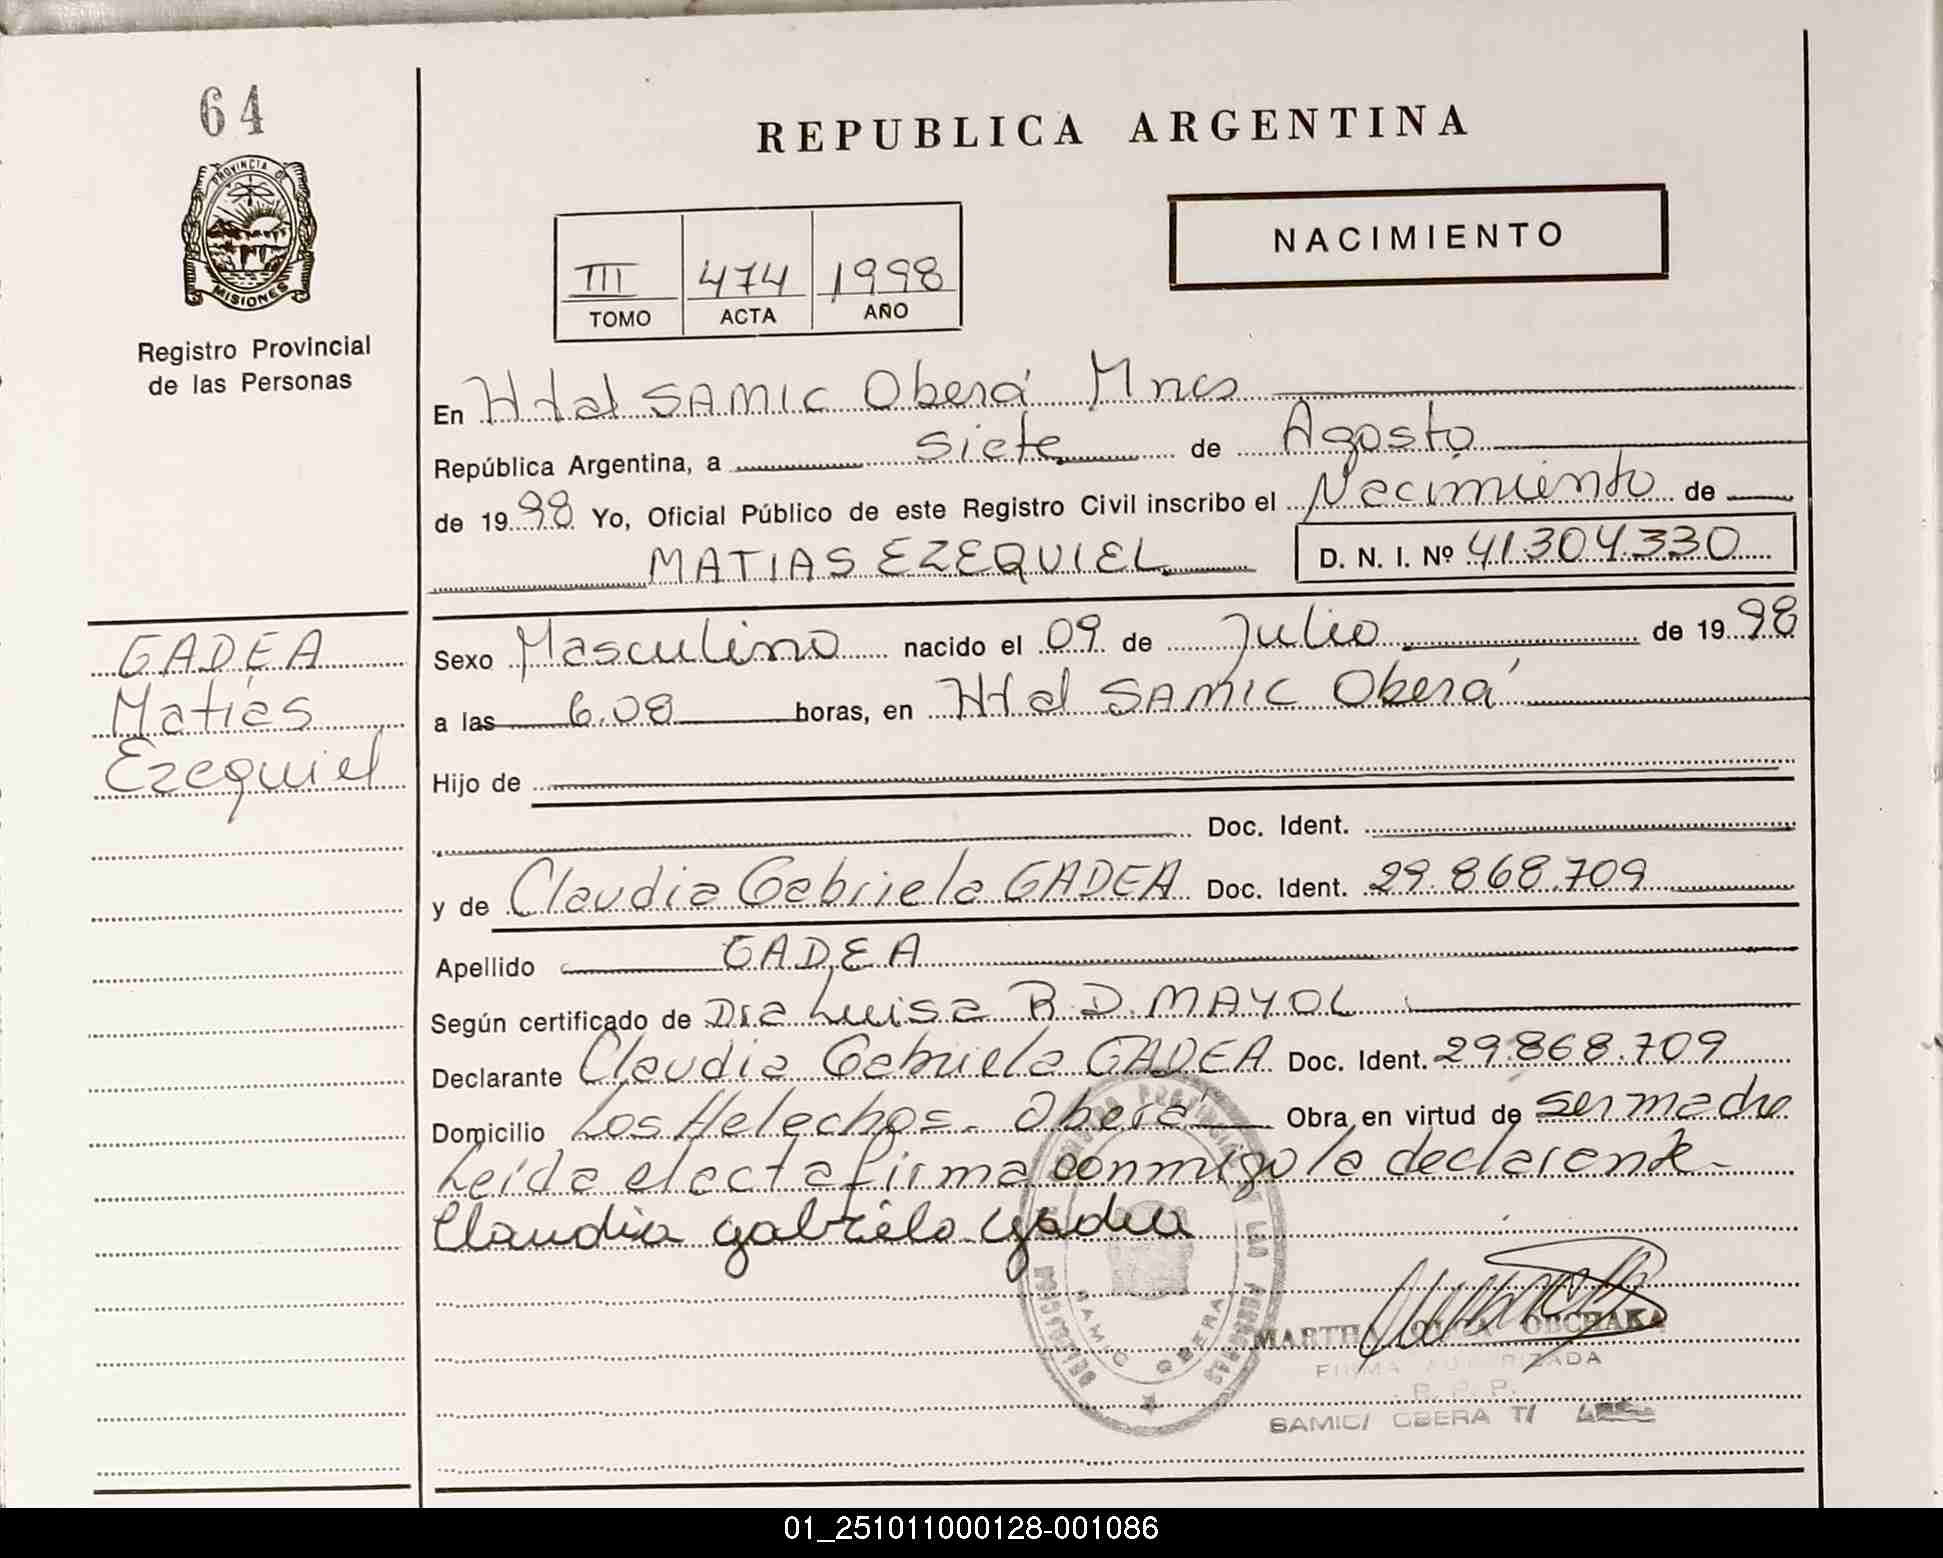 64
PROVINCIA DE
MISIONES
Registro Provincial
de las Personas
GADEA
Matías
Ezequiel
REPUBLICA ARGENTINA
NACIMIENTO
III 474 1998
TOMO ACTA AÑO
En Htal SAMIC Oberá Mnes
República Argentina, a siete de Agosto
de 1998 Yo, Oficial Público de este Registro Civil inscribo el Nacimiento de
MATIAS EZEQUIEL D. N. I. Nº 41.304.330
Sexo Masculino nacido el 09 de Julio de 1998
a las 6.08 horas, en Htal SAMIC Oberá
Hijo de
Doc. Ident.
y de Claudia Gabriela GADEA Doc. Ident. 29.868.709
Apellido GADEA
Según certificado de Dra Luisa R D. MAYOL
Declarante Claudia Gabriela GADEA Doc. Ident. 29.868.709
Domicilio Los Helechos - Oberá Obra en virtud de ser madre
Leída el acta firma conmigo la declarante -
Claudia gabriela gadea
SAMIC OBERA
MARTHA OBCHAKA
FIRMA AUTORIZADA
R. P. P.
SAMIC/ OBERA
01_251011000128-001086